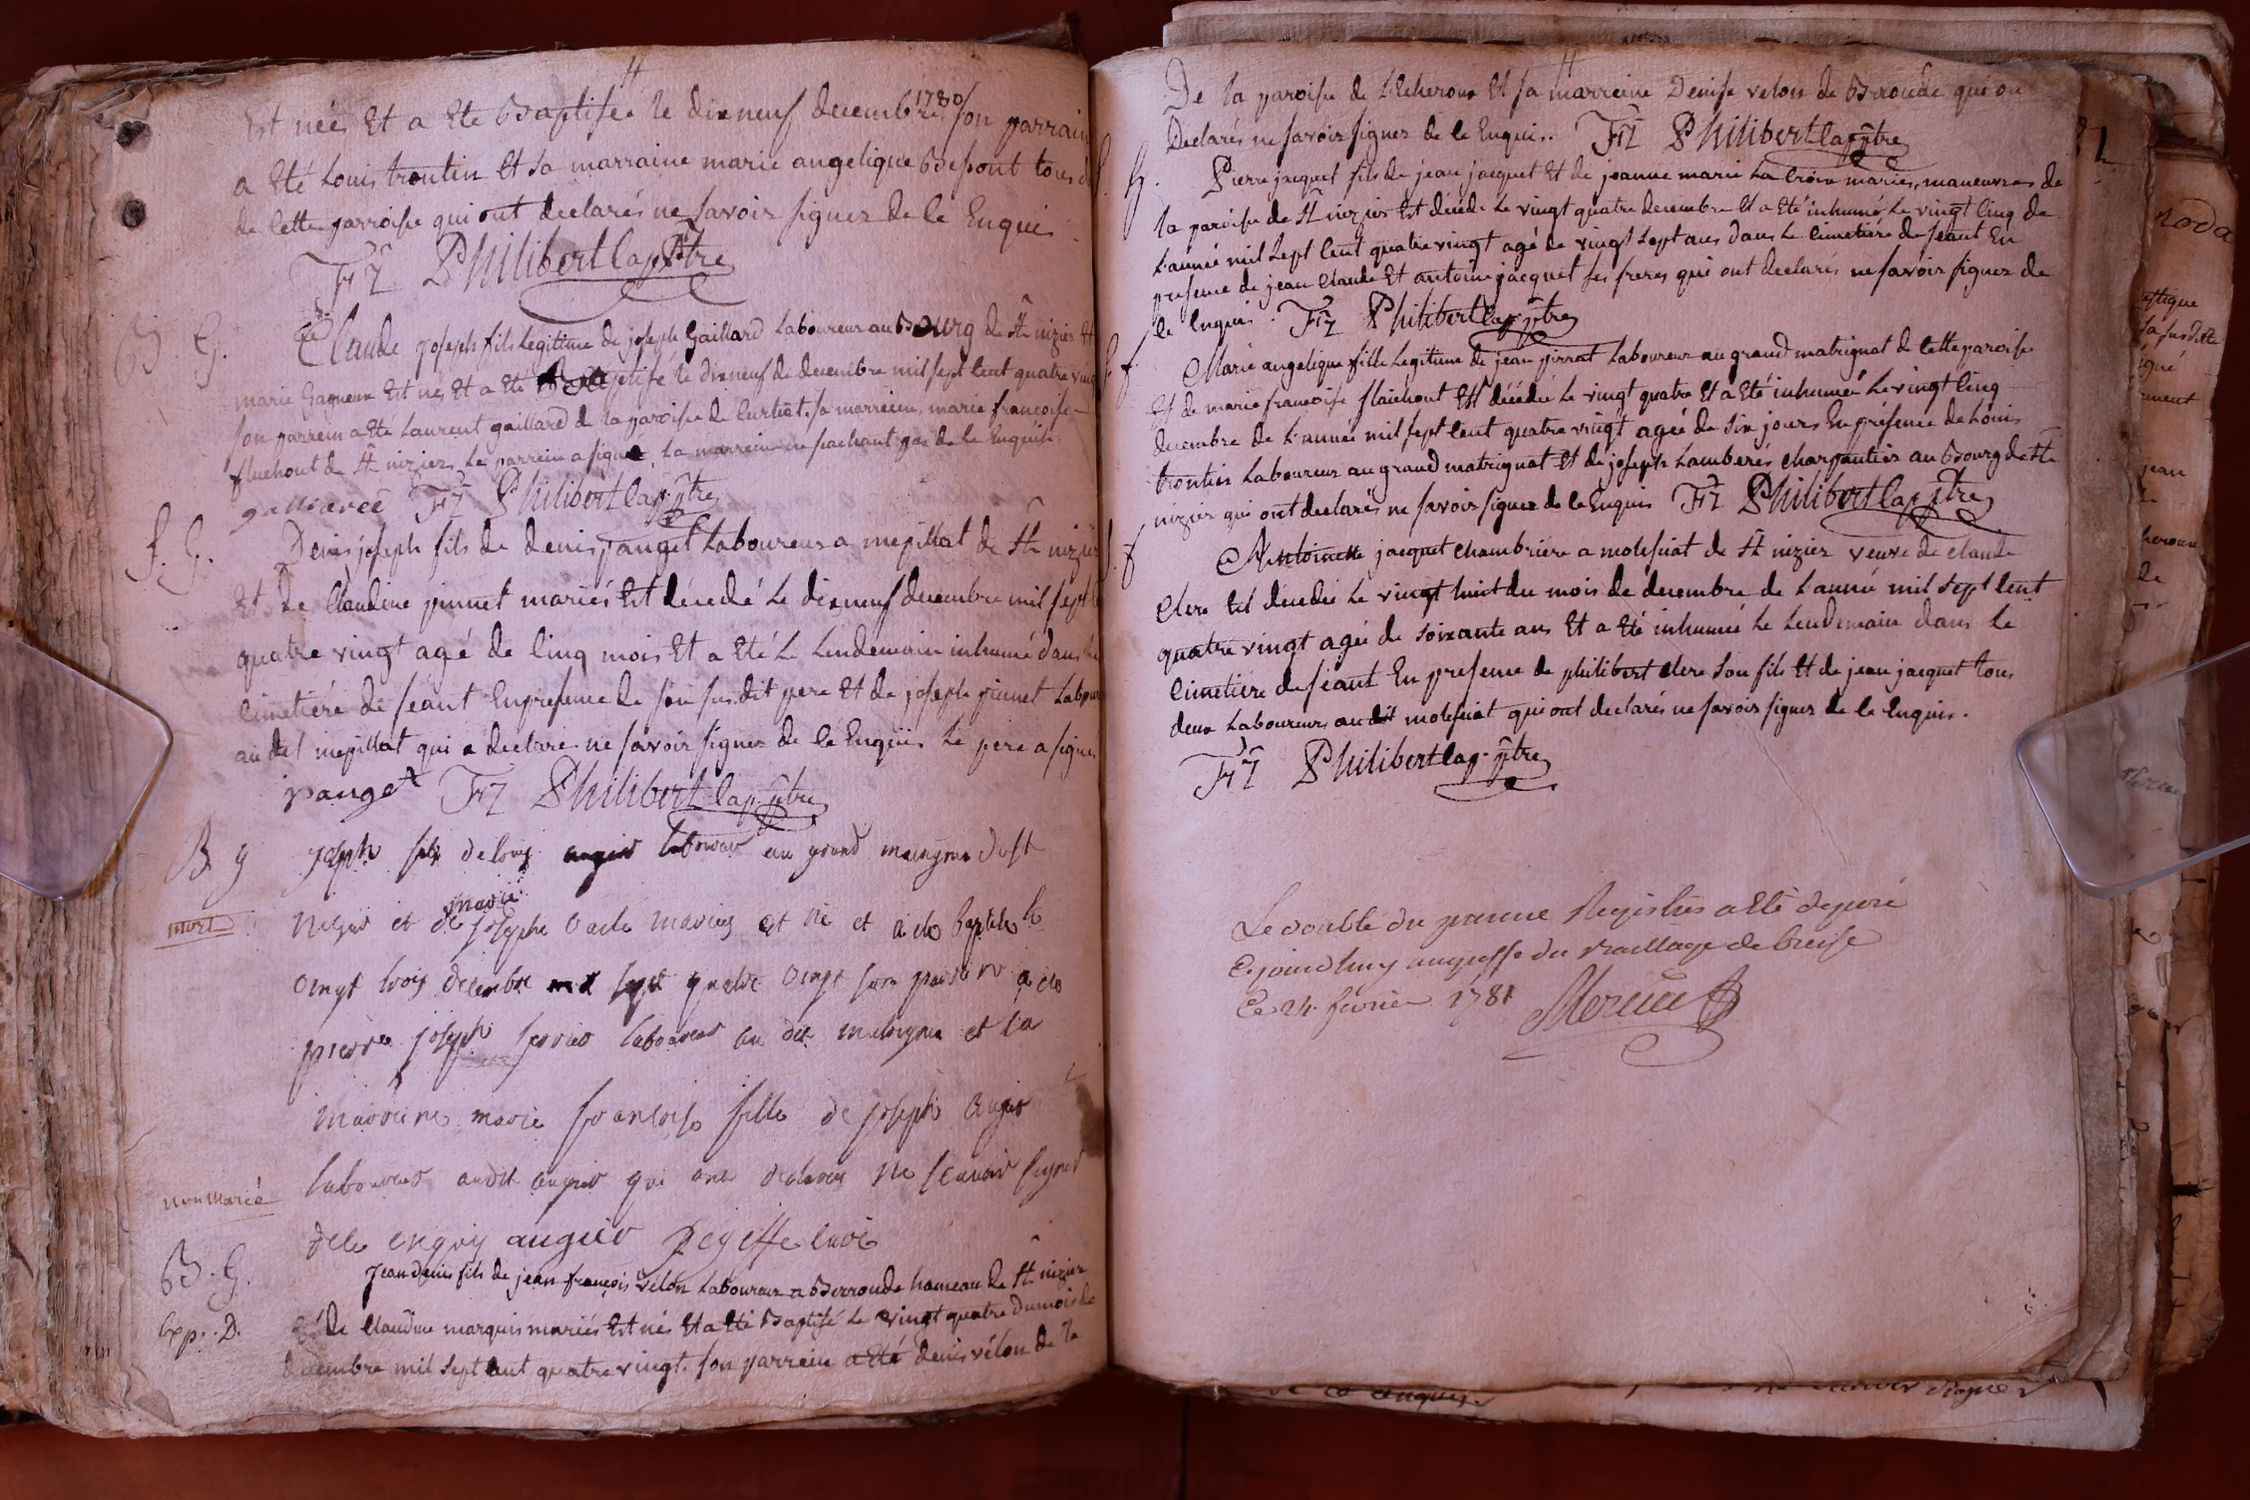 Est née Et a Ete Baptisée le dixneuf decembre 1780 son parrain
a Eté Louis trontin Et sa marraine marie angelique Besont tous de
de cette parroisse qui ont declarés ne savoir signer de ce Enquis
Frz Philibert cap. ptre
B G. Claude joseph fils Legitime de joseph Gaillard Laboureur au Bourg de St nizier Et
marie Gagneux Est né Et a eté Baptisé le dixneuf de decembre mil sept cent quatre vingt
son parrein a Ete Laurent gaillard de la paroisse de Curtiat. sa marreine marie francoise
fluchout de St nizier, Le parrein a signé, la marreine ne sachant pas de ce Enquise
Frz Philibert cap. ptre
S. G. Denis joseph fils de denis panget Laboureur a mepillat de St nizier
Et de Claudine pinnet mariés Est décédé Le dixneuf decembre mil sept
quatre vingt agé de cinq mois Et a Eté Le Lendemain inhumé dans le
Cimetiére de séant En presence de son susdit pere Et de joseph pinnet Labour
au dit mepillat qui a declaré ne savoir signer de ce Enquis Le pere a signé
panget Frz Philibert cap. ptre
B g joseph fils de louis augier laboureur au grand matignat de st
mort nizier et de marie josephe mariez est né et a ete baptisé le
vingt trois decembre mil sept quatre vingt son parein a ete
pierre joseph laboureur au dit matignat et la
mareine marie francoise fille de joseph augier
non marié laboureur audit qui ont declaré ne scavoir signer
de ce enquis augier curé
B. G. Jean denis fils de jean françois vélon Laboureur a Berroude hameau de St nizier
Exp. D. Et de Claudine marquis mariés Est né Et a Eté Baptisé Le vingt quatre du mois de
decembre mil sept cent quatre vingt. son parrein a Eté denis vélon de la
De la paroisse de Et sa marreine Denise velon de Berroude qui on
Declarés ne savoir signer de ce Enquis. Frz Philibert cap. ptre
Pierre jacquet fils de jean jacquet Et de jeanne marie La Croix mariés, maneuvres de
la paroisse de St nizier Est décédé Le vingt quatre decembre Et a Eté inhumé Le vingt cinq de
L'année mil Sept cent quatre vingt agé de vingt sept ans dans Le cimetiere de séant En
presence de jean Claude Et antoine jacquet ses freres qui ont declarés ne savoir signer de
ce Enquis. Frz Philibert cap. ptre
Marie angelique fille Legitime de jean pirrat Laboureur au grand matignat de Cette paroisse
Et de marie francoise fluchout Est décédée Le vingt quatre Et a Eté inhumée Le vingt cinq
decembre de L'année mil sept cent quatre vingt agée de six jours En présence de Louis
trontin Laboureur au grand matignat Et de joseph Lamberés charpantier au Bourg de St
nizier qui ont declarés ne savoir signer de ce Enquis Frz Philibert cap. ptre
Antoinette jacquet chambriere a molesiat de St nizier veuve de claude
Clerc Est décédée Le vingt huit du mois de decembre de L'année mil sept cent
quatre vingt agée de soixante ans Et a Eté inhumée Le Lendemain dans Le
Cimetiére de séant En presence de philibert clerc son fils Et de jean jacquet tous
deux Laboureurs audit molesiat qui ont declarés ne savoir signer de ce Enquis.
Frz Philibert cap. ptre
Le double du present Registre a Eté deposé
Cejourd'huy au greffe du Bailliage de Bresse
Ce 24 fevrier 1781